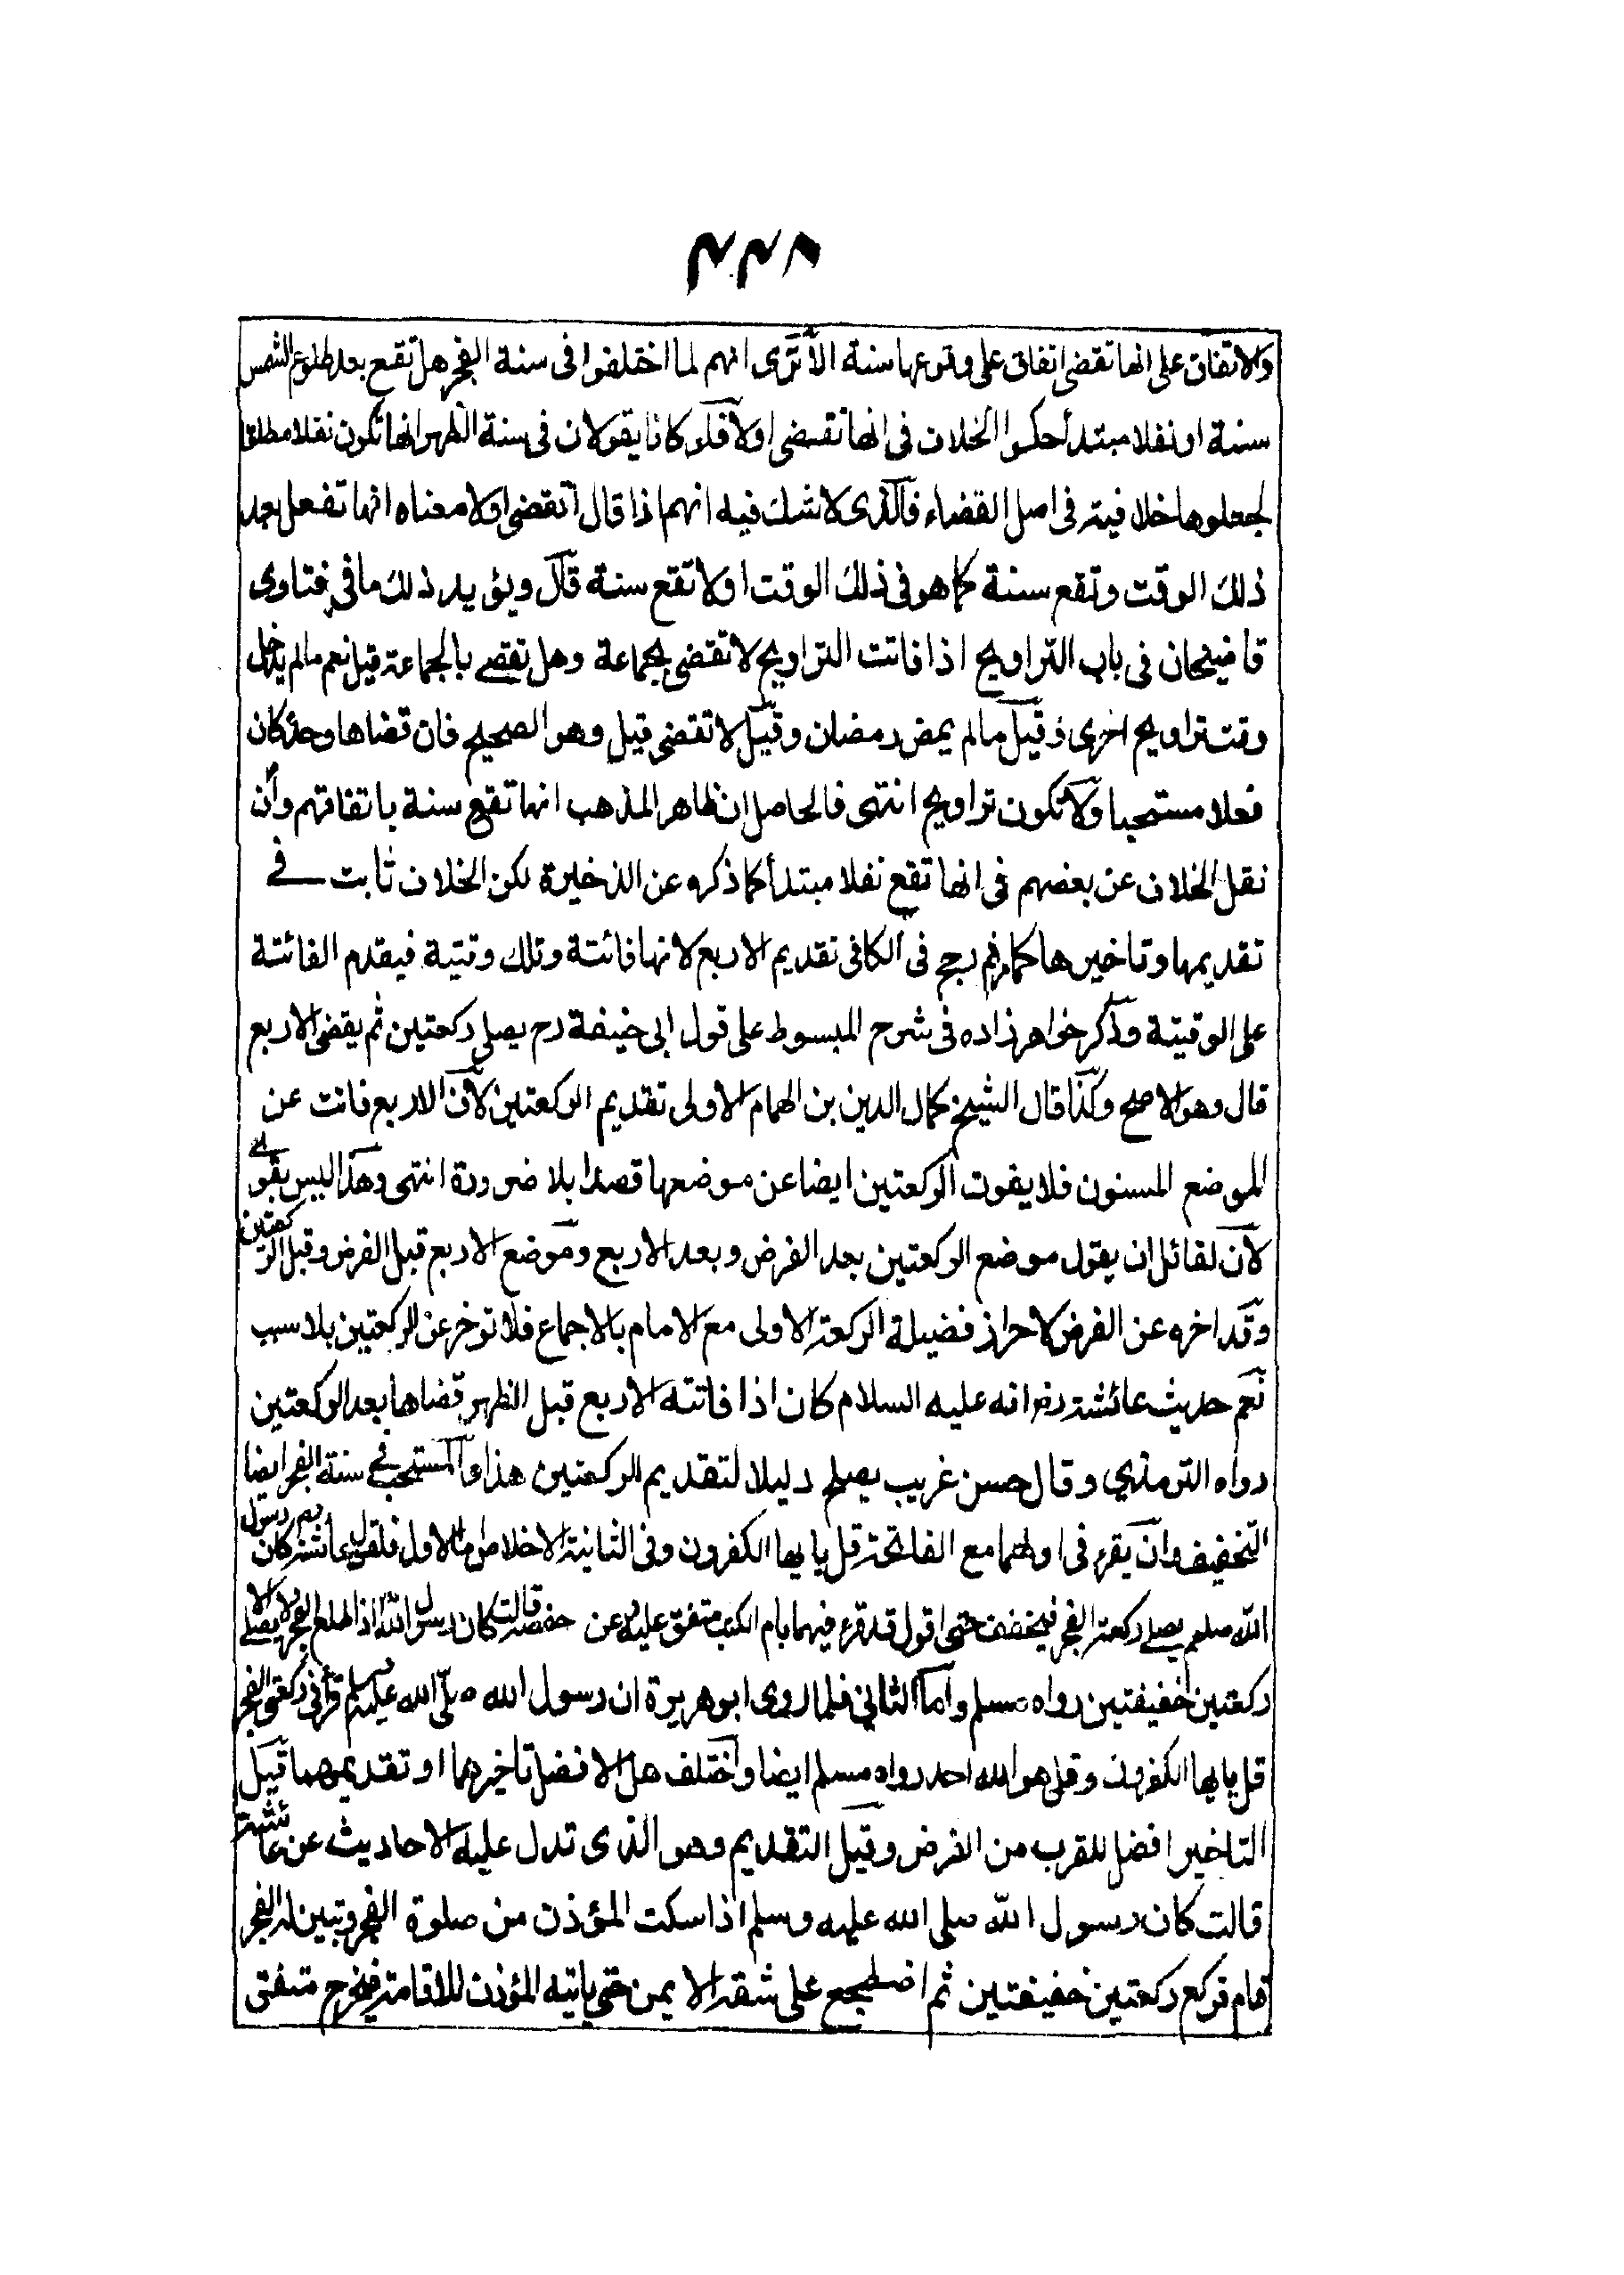 والاتفاق على انها تقضى اتفاق على وقوعها سنة الا ترى انهم لما اختلفوا فى سنة الفجر هل تقع بعد طلوع الشمس
سنة او نفلا مبتدأ حكوا الخلاف فى انها تقضى اولا فلو كانا يقولان فى سنة الظهر انها تكون نفلا مطلقا
لجعلوها خلافية فى اصل القضاء فالذى لا شك فيه انهم اذا قال اتقضى اولا معناه انها تفعل بعد
ذلك الوقت وتقع سنة كما هو فى ذلك الوقت اولا تقع سنة قال ويؤيد ذلك ما فى فتاوى
قاضيخان فى باب التراويح اذا فاتت التراويح لا تقضى بجماعة وهل تقضى بالجماعة قيل نعم مالم يدخل
وقت تراويح اخرى وقيل مالم يمض رمضان وقيل لا تقضى قيل وهو الصحيح فان قضاها وحده كان
فعلا مستحبا ولا تكون تراويح انتهى فالحاصل ان ظاهر المذهب انها تقع سنة باتفاقهم وان
نقل الخلاف عن بعضهم فى انها تقع نفلا مبتدأ كما ذكره عن الذخيرة لكن الخلاف ثابت فى
تقديمها وتاخيرها كما مر ثم رجح فى الكافى تقديم الاربع لانها فائتة وتلك وقتية فيقدم الفائتة
على الوقتية وذكر خواهرزاده فى شرح المبسوط على قول ابى حنيفة رح يصلى ركعتين ثم يقضى الاربع
قال وهو الاصح وكذا قال الشيخ كمال الدين بن الهمام الاولى تقديم الركعتين لان الاربع فاتت عن
الموضع المسنون فلا يفوت الركعتين ايضا عن موضعها قصدا بلا ضرورة انتهى وهذا ليس بقوى
لان لقائل ان يقول موضع الركعتين بعد الفرض وبعد الاربع وموضع الاربع قبل الفرض وقبل الركعتين
وقد اخره عن الفرض لاحراز فضيلة الركعة الاولى مع الامام بالاجماع فلا توخر عن الركعتين بلا سبب
نعم حديث عائشة رض انه عليه السلام كان اذا فاتته الاربع قبل الظهر قضاها بعد الركعتين
رواه الترمذى وقال حسن غريب يصلح دليلا لتقديم الركعتين هذا والمستحب فى سنة الفجر ايضا
التخفيف وان يقرء فى اولهما مع الفاتحة قل يايها الكفرون وفى الثانية الاخلاص اما الاول فلقول عائشة رض كان رسول
الله صلعم يصلى ركعتى الفجر فيخفف حتى اقول قد قرء فيهما بام الكتب متفق عليه وعن حفصة قالت كان رسول الله اذا طلع الفجر لا يصلى الا
ركعتين خفيفتين رواه مسلم واما الثانى فلما روى ابو هريرة ان رسول الله صلى الله عليه وسلم قرأ فى ركعتى الفجر
قل يايها الكفرون وقل هو الله احد رواه مسلم ايضا واختلف هل الافضل تاخيرهما او تقديمهما قيل
التاخير افضل للقرب من الفرض وقيل التقديم وهو الذى تدل عليه الاحاديث عن عائشة
قالت كان رسول الله صلى الله عليه وسلم اذا سكت المؤذن من صلوة الفجر وتبين له الفجر
قام فركع ركعتين خفيفتين ثم اضطجع على شقه الايمن حتى ياتيه المؤذن للاقامة فيخرج متفق